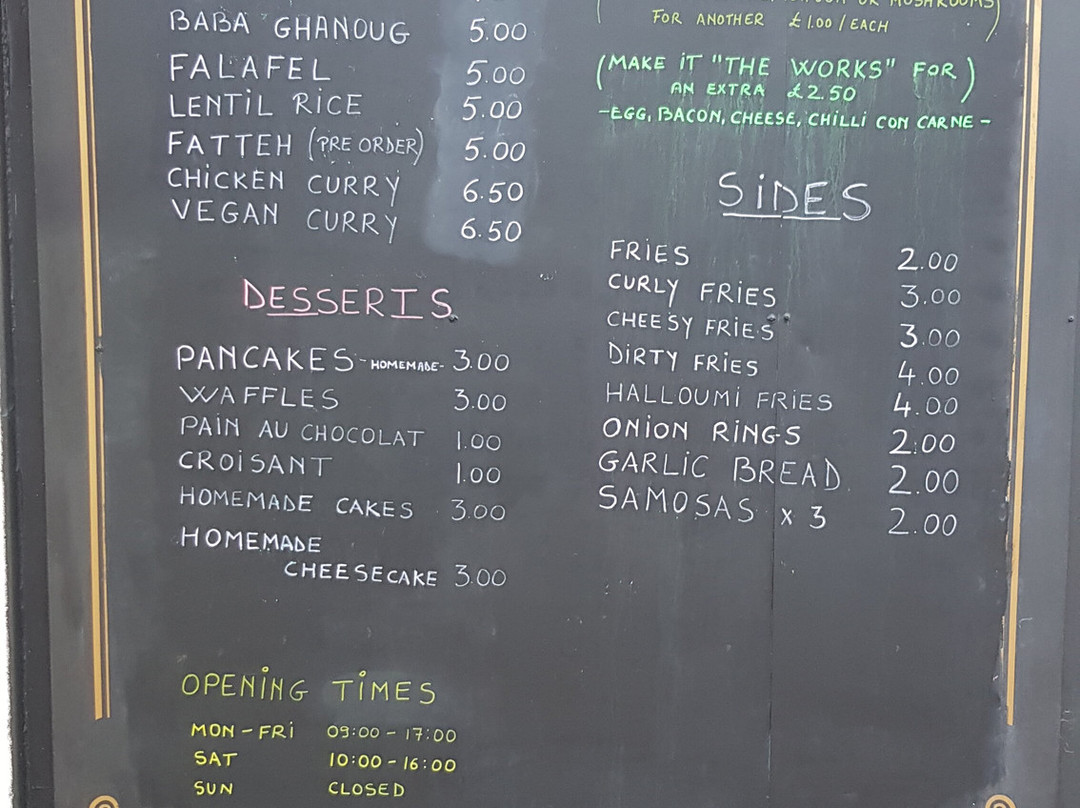 BABA GHANOUG 5.00
FALAFEL 5.00
LENTIL RICE 5.00
FATTEH (PRE ORDER) 5.00
CHICKEN CURRY 6.50
VEGAN CURRY 6.50
DESSERTS
PANCAKES -HOMEMADE- 3.00
WAFFLES 3.00
PAIN AU CHOCOLAT 1.00
CROISANT 1.00
HOMEMADE CAKES 3.00
HOMEMADE
CHEESECAKE 3.00
OPENING TIMES
MON - FRI 09:00 - 17:00
SAT 10:00 - 16:00
SUN CLOSED
OR MUSHROOMS)
FOR ANOTHER £1.00 / EACH
(MAKE IT "THE WORKS" FOR
AN EXTRA £2.50)
-EGG, BACON, CHEESE, CHILLI CON CARNE -
SIDES
FRIES 2.00
CURLY FRIES 3.00
CHEESY FRIES 3.00
DIRTY FRIES 4.00
HALLOUMI FRIES 4.00
ONION RINGS 2.00
GARLIC BREAD 2.00
SAMOSAS x 3 2.00